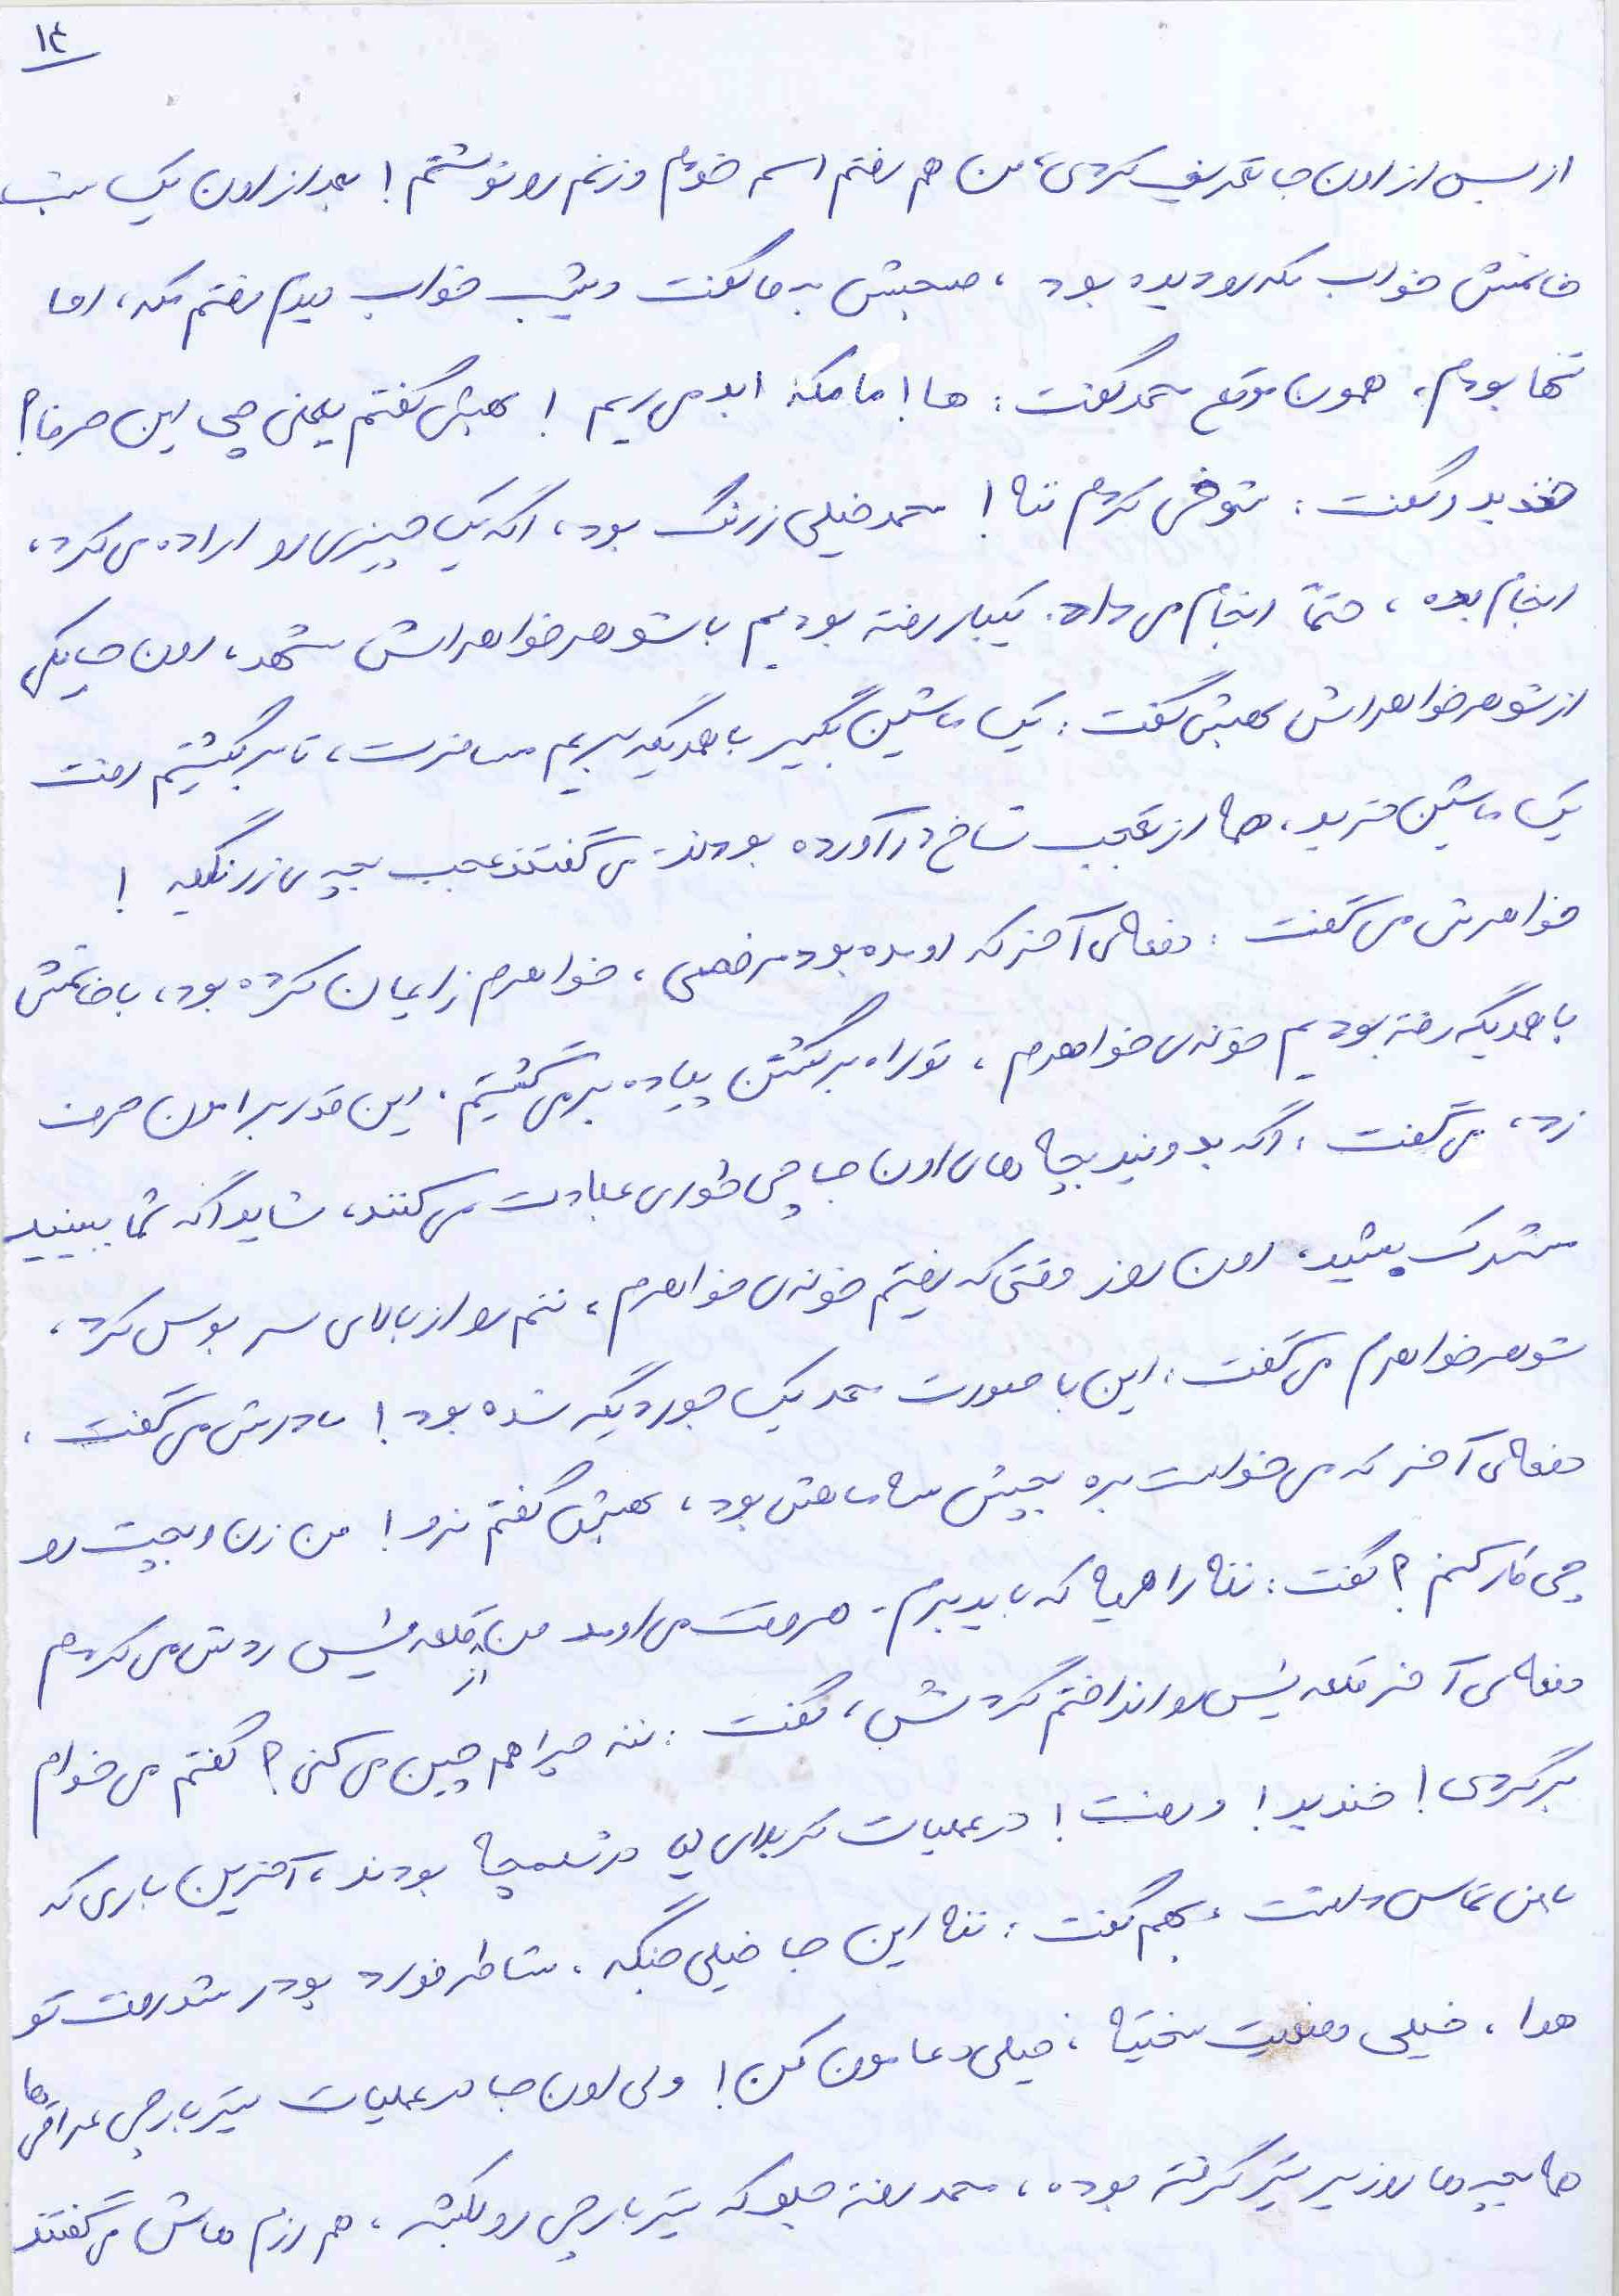 ۱۴
از بس از اون جا تعریف کردی، من هم رفتم اسم خودم و زنم رو نوشتم! بعد از اون یک شب
خانمش خواب مکه رو دیده بود، صبحش به ما گفت دیشب خواب دیدم رفتم مکه، اما
تنها بودم، همون موقع محمد گفت: ها! ما مکه ابد می ریم! بهش گفتم یعنی چی این حرفا؟
خندید و گفت: شوخی کردم ننه! محمد خیلی زرنگ بود، اگه یک چیزی رو اراده می کرد،
انجام بده، حتماً انجام می داد. یکبار رفته بودیم با شوهر خواهراش مشهد، اون جا یکی
از شوهر خواهراش بهش گفت: یک ماشین بگیر با همدیگه بریم مسافرت، تا برگشتیم رفت
یک ماشین خرید، همه از تعجب شاخ در آورده بودند می گفتند عجب بچه ی زرنگیه!
خواهرش می گفت: دفعه ی آخر که اومده بود مرخصی، خواهرم زایمان کرده بود، با خانمش
با همدیگه رفته بودیم خونه ی خواهرم، تو راه برگشتن پیاده برمی گشتیم. این قدر برامون حرف
زد، می گفت: اگه بدونید بچه های اون جا چی طوری عبادت می کنند، شاید اگه شما ببینید
مشرک بشید، اون روز وقتی که رفتیم خونه ی خواهرم، ننم رو از بالای سر بوس کرد،
شوهر خواهرم می گفت: این با صورت محمد یک جور دیگه شده بود! مادرش می گفت:
دفعه ی آخر که می خواست بره بچش سه ماهش بود، بهش گفتم نرو! من زن و بچت رو
چی کار کنم؟ گفت: ننه راهیه که باید برم. هر وقت می اومد من از قلعه یس ردش می کردم
دفعه ی آخر قلعه یس رو انداختم گردنش، گفت: ننه چرا همچین می کنی؟ گفتم می خوام
برگردی! خندید! و رفت! در عملیات کربلای در شلمچه بودند، آخرین باری که
با من تماس داشت، بهم گفت: ننه این جا خیلی جنگه، شاطر خورد بودر شد رفت تو
هوا، خیلی وضعیت سختیه، خیلی دعامون کن! ولی اون جا در عملیات تیربارچی عراقی ها
همه بچه ها رو زیر تیر گرفته بوده، محمد رفته جلو که تیربارچی رو بکشه، هم رزم هاش می گفتند